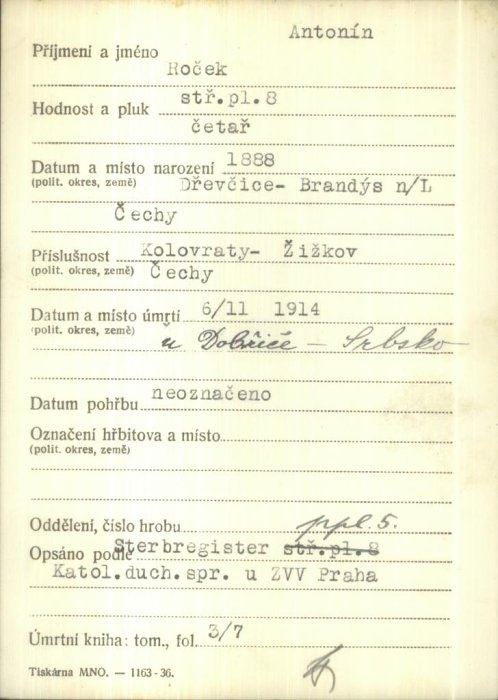 Antonín
Příjmení a jméno
Roček
Hodnost a pluk stř.pl.8
četař
Datum a místo narození 1888
(polit. okres, země) Dřevčice- Brandýs n/L
Čechy
Příslušnost Kolovraty- Žižkov
(polit. okres, země) Čechy
Datum a místo úmrtí 6/11 1914
(polit. okres, země) u Dobřiće - Srbsko
Datum pohřbu neoznačeno
Označení hřbitova a místo
(polit. okres, země)
Oddělení, číslo hrobu ppl. 5.
Opsáno podle Sterbregister stř.pl.8
Katol.duch.spr. u ZVV Praha
Úmrtní kniha: tom., fol. 3/7
Tiskárna MNO. — 1163-36.